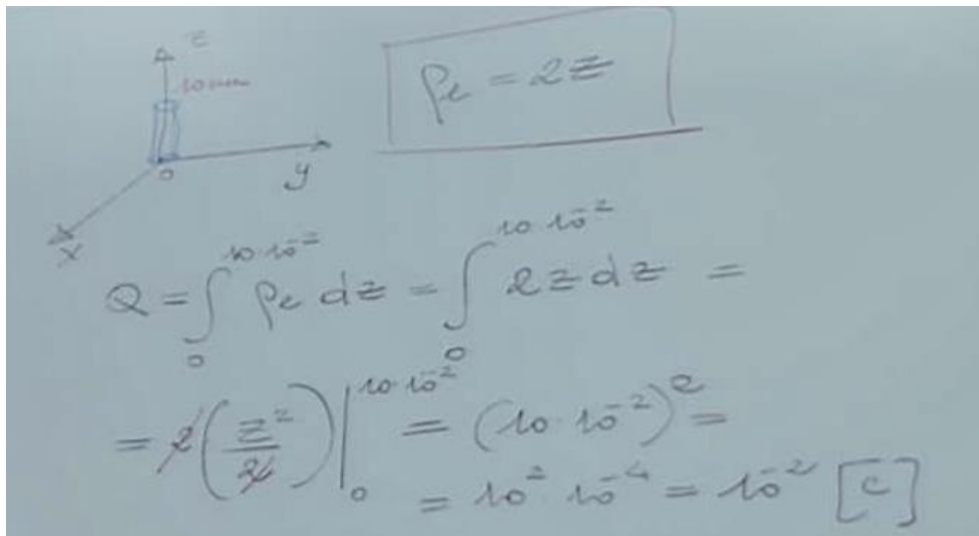 z
10 cm
ρe = 2z
o
y
x
Q = ∫₀^(10·10⁻²) ρe dz = ∫₀^(10·10⁻²) 2z dz =
= 2(z²/2)|₀^(10·10⁻²) = (10·10⁻²)² =
= 10² · 10⁻⁴ = 10⁻² [C]